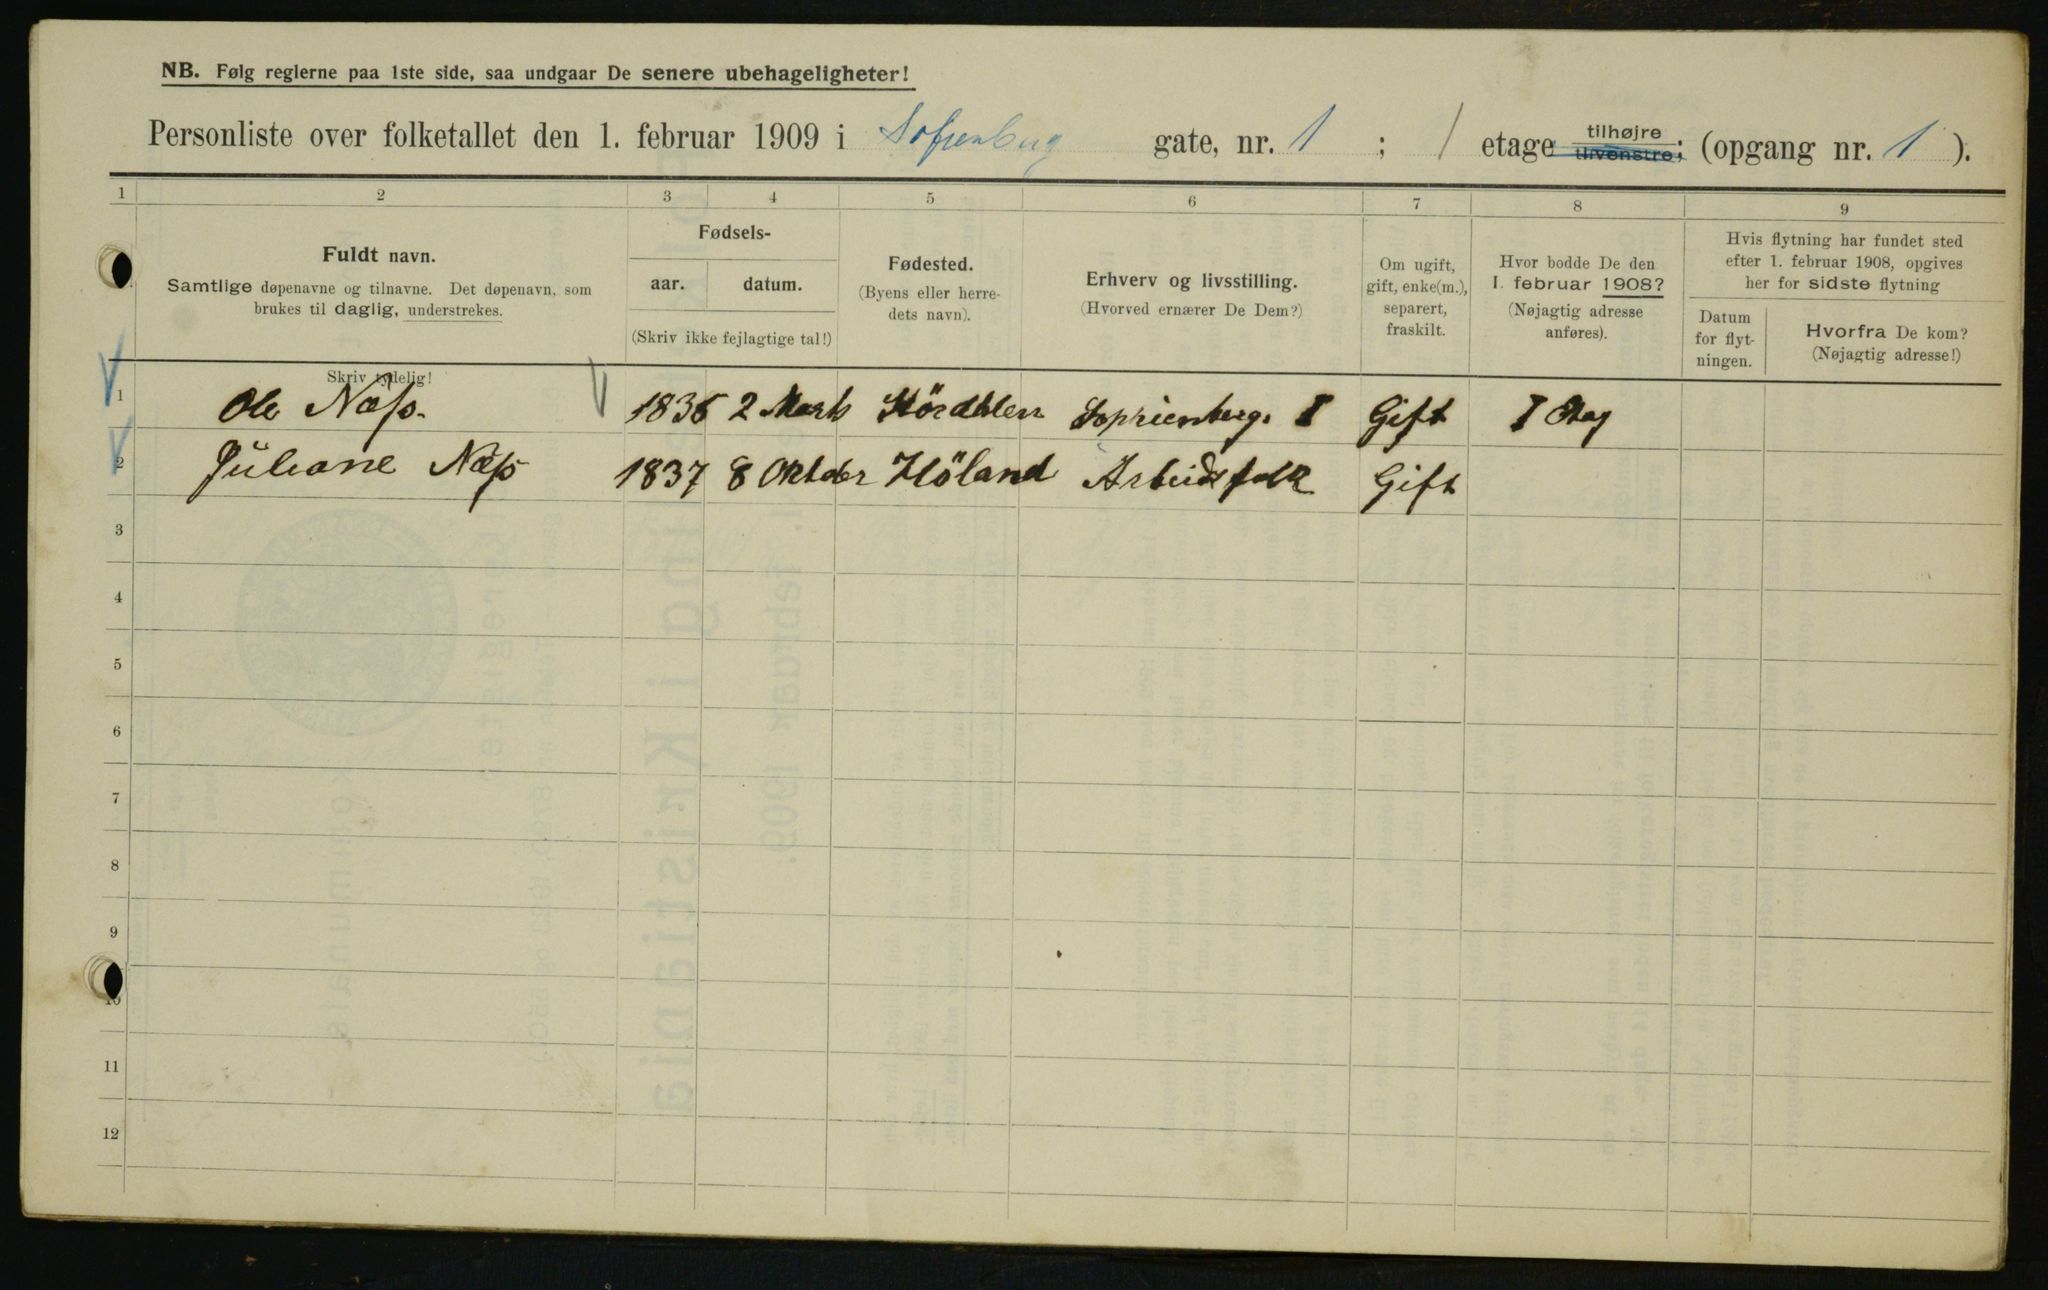 NB. Følg reglerne paa 1ste side, saa undgaar De senere ubehageligheter!
Personliste over folketallet den 1. februar 1909 i Sofienberg gate, nr. 1 ; 1 etage tilhøjre tilvenstre; (opgang nr. 1 ).
1 2 3 4 5 6 7 8 9
Fuldt navn.
Samtlige døpenavne og tilnavne. Det døpenavn, som
brukes til daglig, understrekes.
Skriv tydelig!
Fødsels-
aar. datum.
(Skriv ikke fejlagtige tal!)
Fødested.
(Byens eller herre-
dets navn).
Erhverv og livsstilling.
(Hvorved ernærer De Dem?)
Om ugift,
gift, enke(m.),
separert,
fraskilt.
Hvor bodde De den
1. februar 1908?
(Nøjagtig adresse
anføres).
Hvis flytning har fundet sted
efter 1. februar 1908, opgives
her for sidste flytning
Datum
for flyt-
ningen.
Hvorfra De kom?
(Nøjagtig adresse!)
1 Ole Næss. 1836 2 Marts Sophienberg. I Gift I Etag
2 Juliane Næss 1837 8 Oktober Höland Arbeidsfolk Gift
3
4
5
6
7
8
9
10
11
12